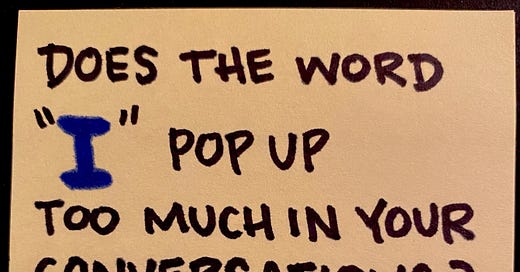 DOES THE WORD
"I" POP UP
TOO MUCH IN YOUR
CONVERSATIONS?